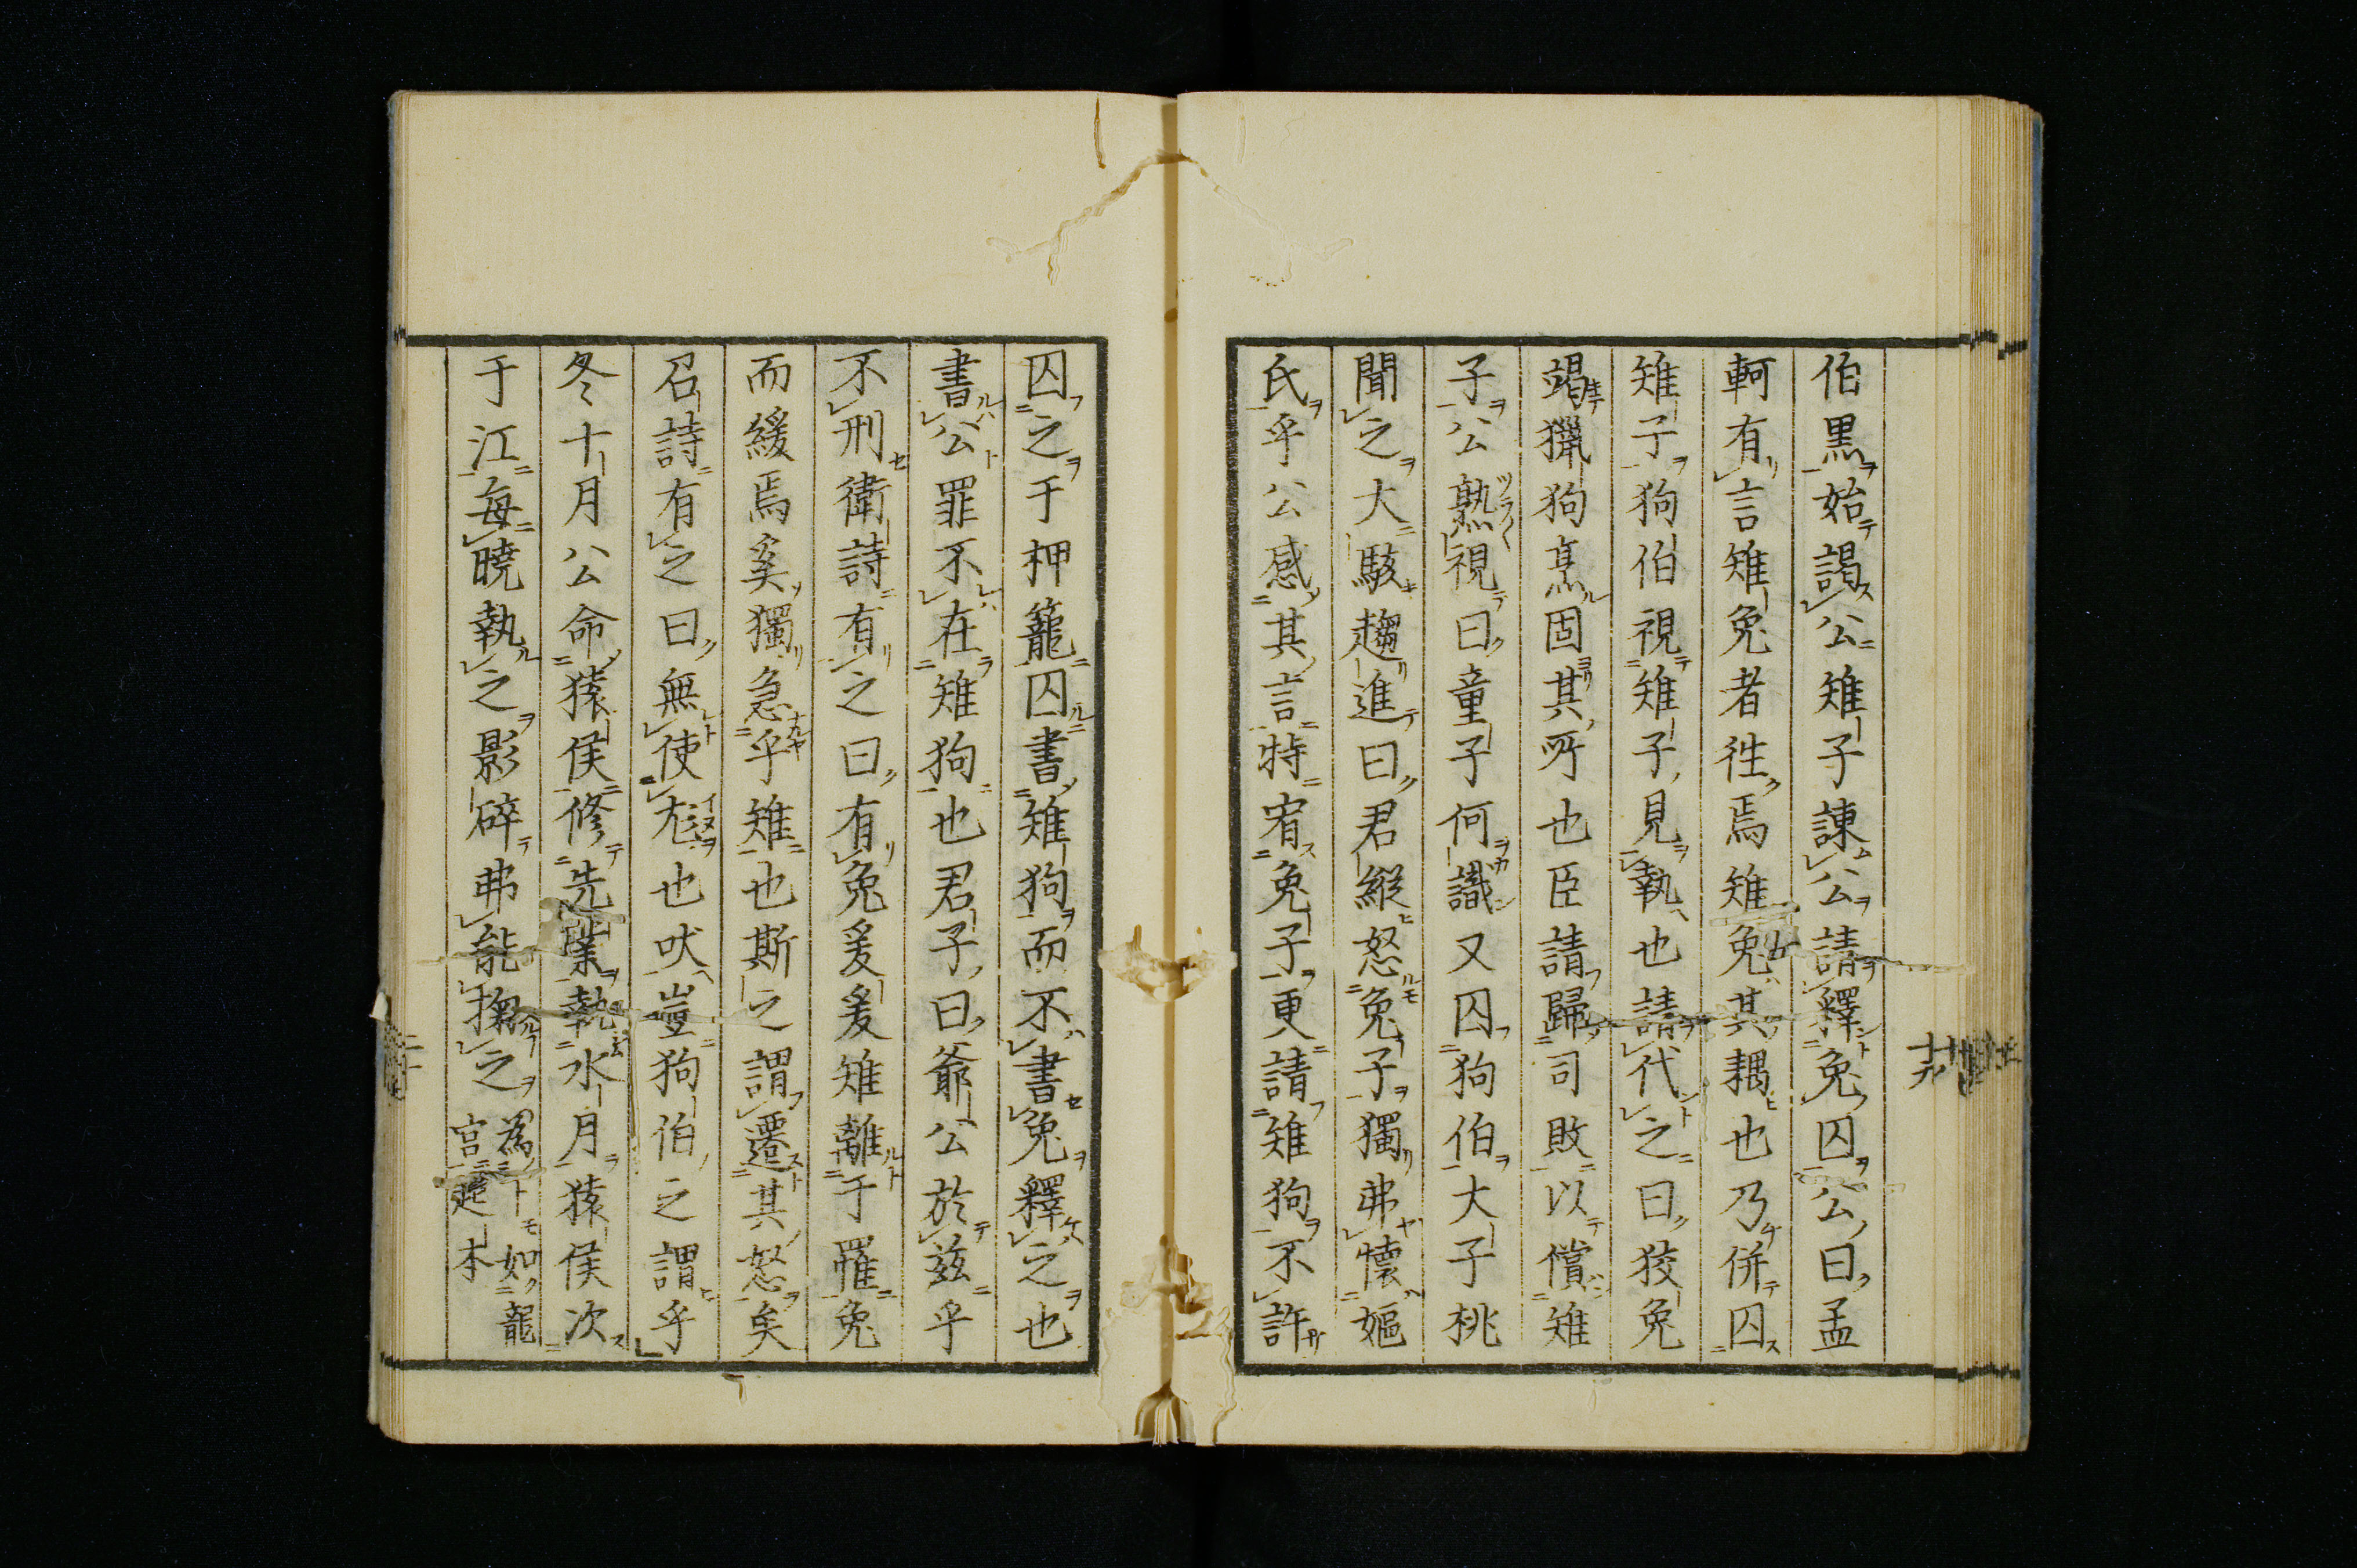 伯黒始謁公雉子諌公請釋兔囚公曰孟
軻有言雉兔者徃焉雉兔其耦也乃併囚
雉子狗伯視雉子見執也請代之曰狡兔
竭獵狗烹固其所也臣請歸司敗以償雉
子公熟視曰童子何識又囚狗伯大子桃
聞之大駭趨進曰君縱怒兔子獨弗懐嫗
氏乎公感其言特宥兔子更請雉狗不許
囚之于柙籠囚書雉狗而不書兔釋之也
書公罪不在雉狗也君子曰爺公於兹乎
不刑衛詩有之曰有兔爰爰雉離于羅兔
而緩焉奚獨急乎雉也斯之謂遷其怒矣
召詩有之曰無使尨也吠豈狗伯之謂乎
冬十月公命猿侯修先業執水月猿侯次
于江毎曉執之影碎弗能掬之
為如龍
宮本